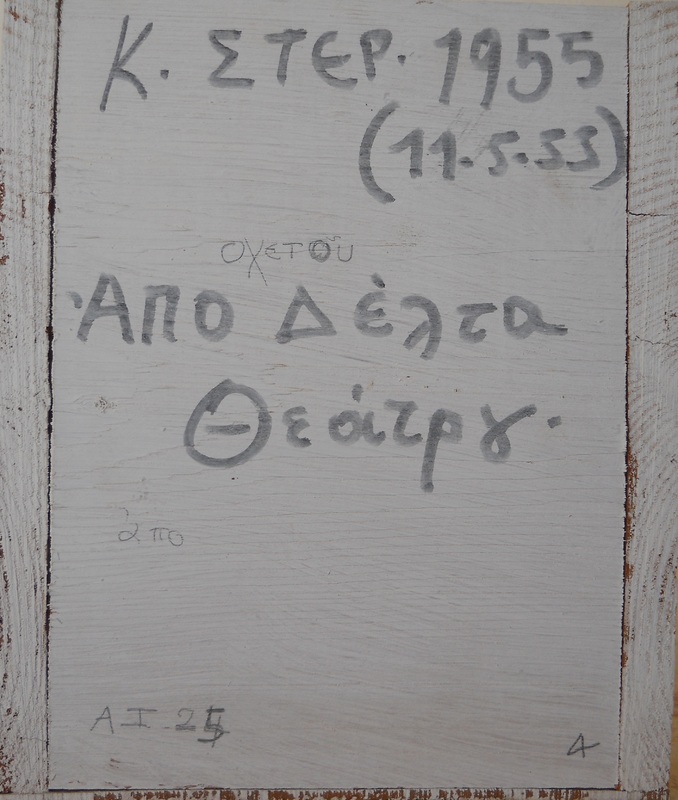 Κ. ΣΤΕΡ. 1955
(11.5.53)
οχετού
Ἀπο Δέλτα
Θεάτρȣ.
ἀπο
ΑΙ 25
Δ